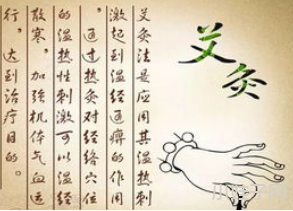 艾灸
艾灸法是应用其温热刺
激起到温经通痹的作用
，通过热灸对经络穴位
的温热性刺激可以温经
散寒，加强机体气血运
行，达到治疗目的。